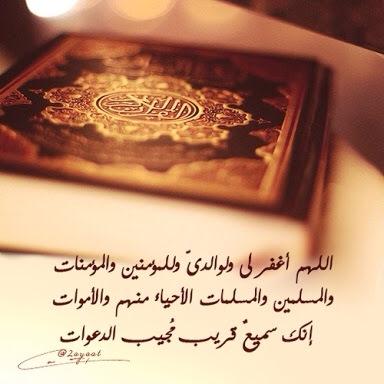 القرآن الكريم
اللهم أغفر لى ولوالدىّ وللمؤمنين والمؤمنات
والمسلمين والمسلمات الأحياء منهم والأموات
إنك سميعٌ قريب مُجيب الدعوات